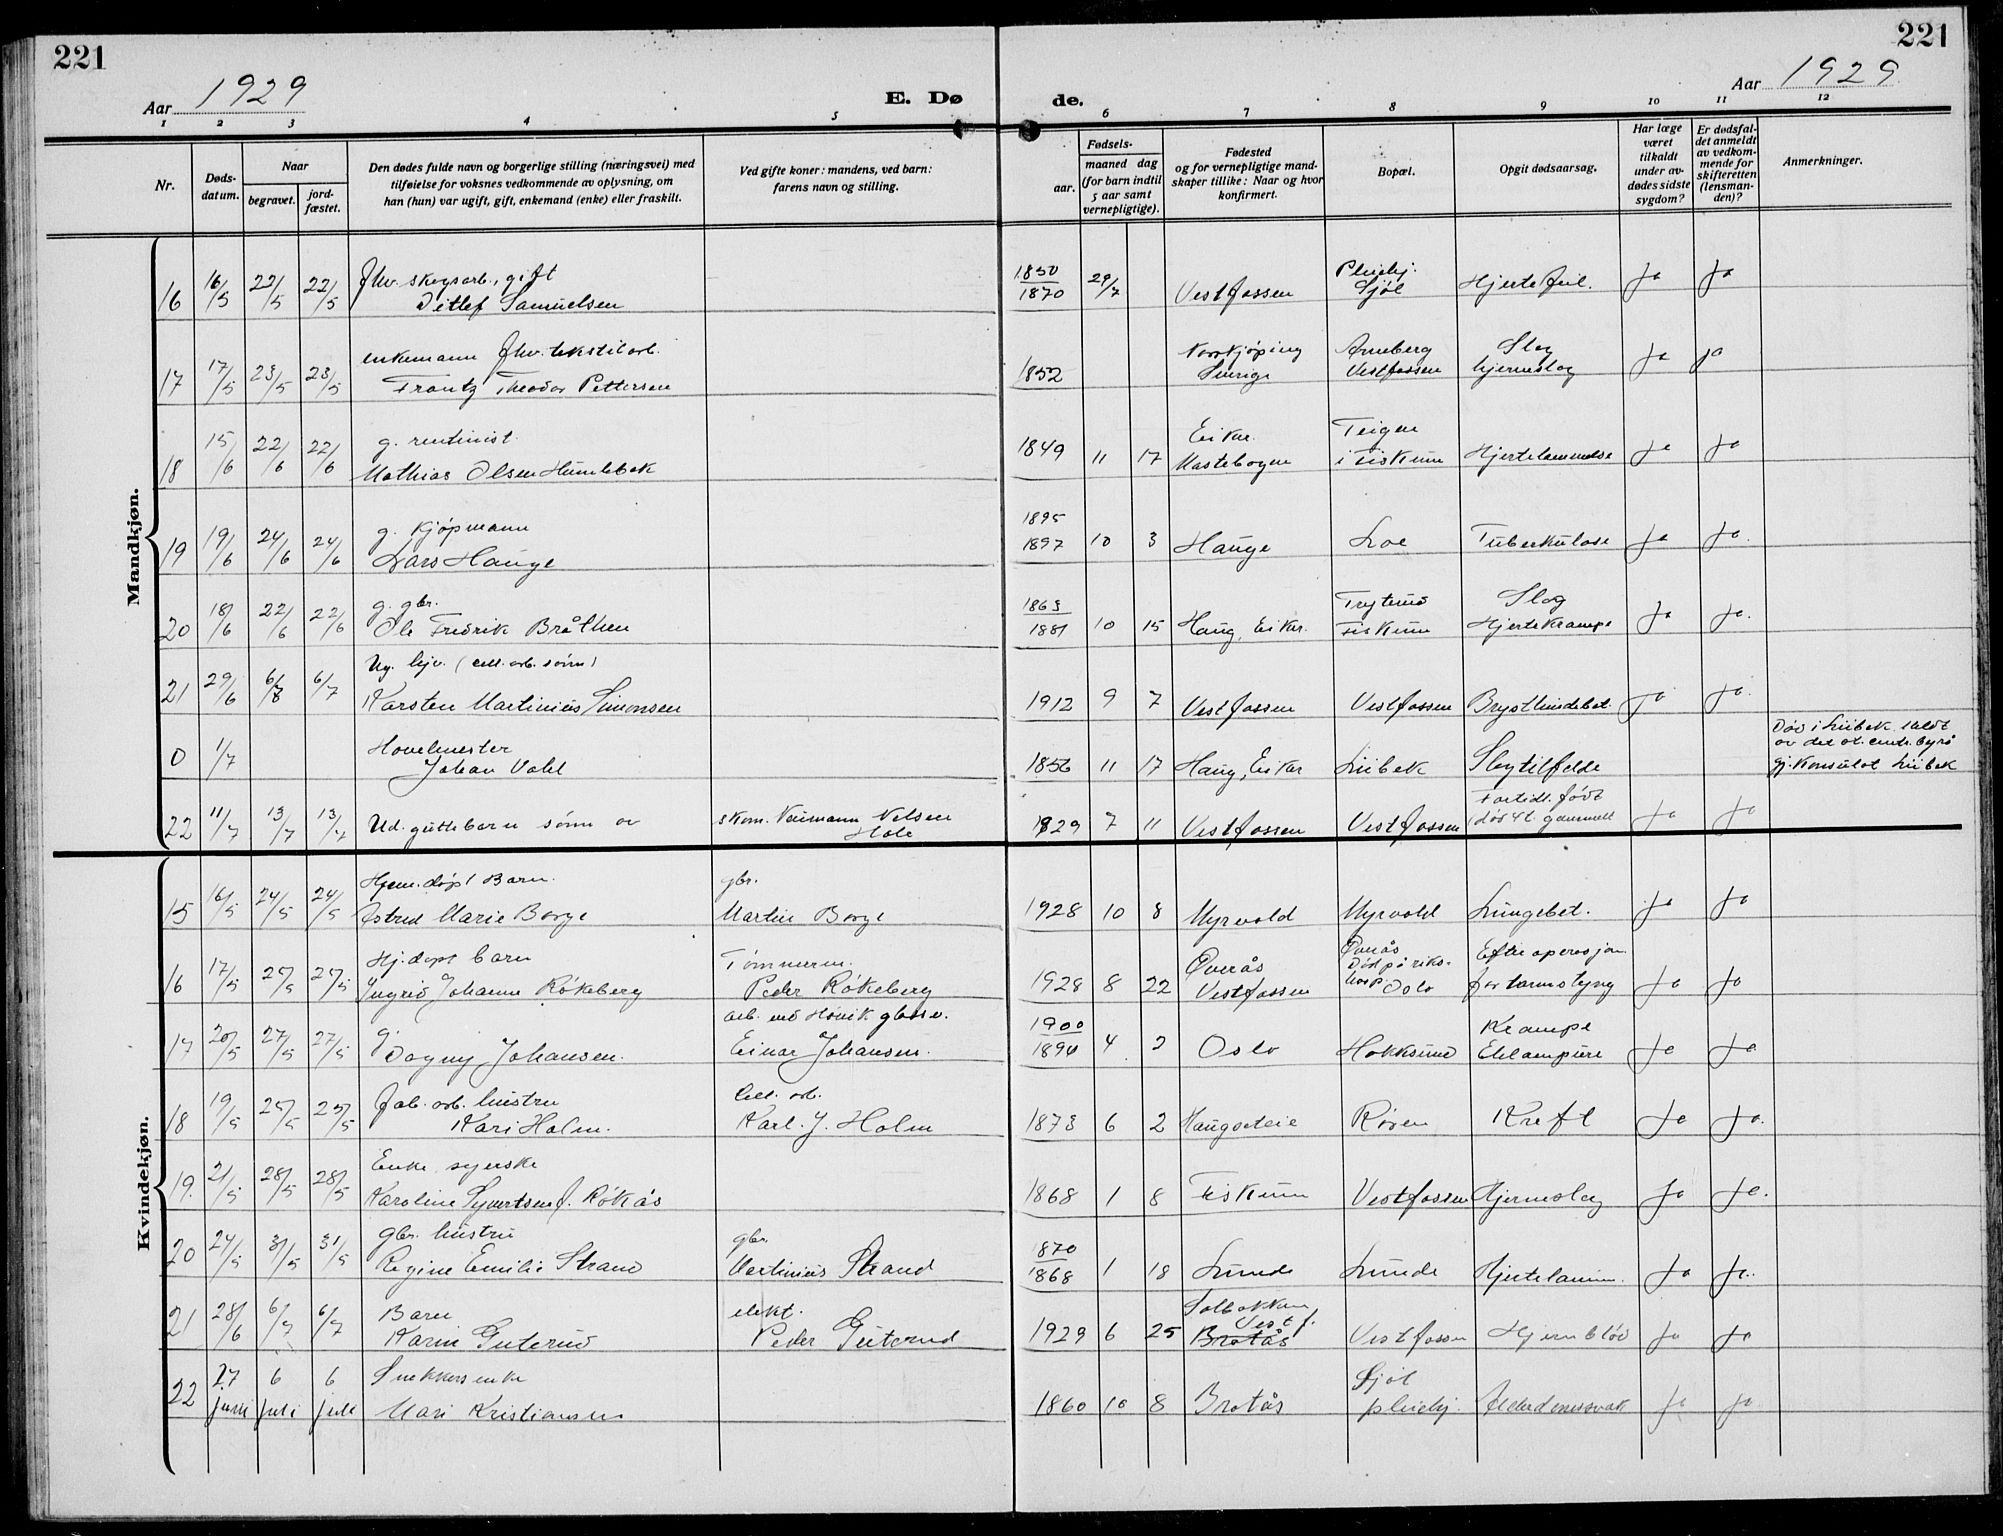 221
221
Aar 1929
E. Dø
de.
Aar 1929
1 2 3 4 5 6 7 8 9 10 11 12
Nr.
Døds-
datum.
Naar
begravet.
jord-
fæstet.
Den dødes fulde navn og borgerlige stilling (næringsvei) med
tilføielse for voksnes vedkommende av oplysning, om
han (hun) var ugift, gift, enkemand (enke) eller fraskilt.
Ved gifte koner: mandens, ved barn:
farens navn og stilling.
Fødsels-
aar.
maaned dag
(for barn indtil
5 aar samt
vernepligtige).
Fødested
og for vernepligtige mand-
skaper tillike: Naar og hvor
konfirmert.
Bopæl.
Opgit dødsaarsag.
Har læge
været
tilkaldt
under av-
dødes sidste
sygdom?
Er dødsfal-
det anmeldt
av vedkom-
mende for
skifteretten
(lensman-
den)?
Anmerkninger.
Mandkjøn.
fhv. skogsarb., gift 1850 29/7 Pleiehj.
16 16/5 22/5 22/5 Ditlef Samuelsen 1870 Vestfossen Sjøl Hjertefeil. Ja Ja
enkemann fhv. tekstilarb. Norrkjøping Arneberg Slag
17 17/5 23/5 23/5 Frantz Theodor Pettersen 1852 Sverige Vestfossen hjerneslag Ja Ja
g. rentenist Eiker. Teigen
18 15/6 22/6 22/6 Mathias Olsen Humlebek 1849 11 17 Mastebogen i Fiskum Hjertelammelse Ja Ja
g. Kjøpmann 1895
19 19/6 24/6 24/6 Lars Hauge 1897 10 3 Hauge Loe Tuberkulose Ja Ja.
g. gbr. 1863 Slag
20 18/6 22/6 22/6 Ole Fredrik Bråthen 1881 10 15 Haug, Eiker. Fiskum Hjertekrampe Ja Ja.
Ug. hjv. (cell. arb. sønn)
21 29/6 6/7 6/7 Karsten Martinius Simonsen 1912 9 7 Vestfossen Vestfossen Brysthindebet. Ja Ja.
Hovelmester Død i Lübek.
0 1/7 Johan Vahl 1856 11 17 Haug, Eiker Lübek Slagtilfelde gj. Konsulat Lübek
22 11/7 13/7 13/7 Ud. guttebarn sønn av skom. Neumann Nelsen 1929 7 11 Vestfossen Vestfossen Ja Ja
Hole
Kvindekjøn.
Hjem. døpt Barn. gbr.
15 16/5 24/5 24/5 Astrid Marie Borge Martin Borge 1928 10 8 Myrvold Myrvold Lungebet. Ja Ja
Hj. døpt barn Tømmerm. Øverås Øverås Efter operasjon
16 17/5 27/5 27/5 Ingrid Johanne Røkeberg Peder Røkeberg 1928 8 22 Vestfossen Død på riks-
hosp Oslo for tarmslyng Ja Ja
g. arb. ved Høvik glassv. 1900 Krampe
17 20/5 27/5 27/5 Dagny Johansen. Einar Johansen. 1894 4 2 Oslo Hokksund Eklampsie Ja Ja
fab. arb. hustru Cell. arb.
18 19/5 25/5 25/5 Kari Holm. Karl. J. Holm 1873 6 2 Haugseteie Røren Kreft Ja Ja.
Enke, syerske
19. 21/5 28/5 28/5 Karoline Syvertsen f. Røkås 1868 1 8 Fiskum Vestfossen Hjerneslag Ja Ja.
gbr. hustru gbr. 1870
20 24/5 31/5 31/5 Regine Emilie Strand Martinius Strand 1868 1 18 Lunde Lunde Hjertelamm. Ja Ja.
Barn elekt. Solbakken Vestf.
21 28/6 6/7 6/7 Karin Guterud Peder Guterud 1929 6 25 Brotås Vestfossen Hjerneblød Ja Ja
Snekkers enke Sjøl
22 27 juni 6 juli 6 juli Mari Kristiansen 1860 10 8 Brotås pleiehj. Alderdomssvak Ja Ja